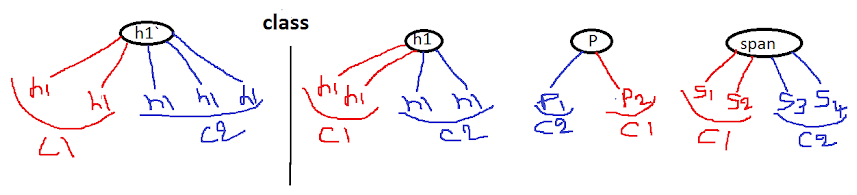 class
h1`
h1 h1 h1 h1 h1
C1 C2
h1
h1 h1 h1 h1
C1 C2
P
P1 P2
C2 C1
span
S1 S2 S3 S4
C1 C2